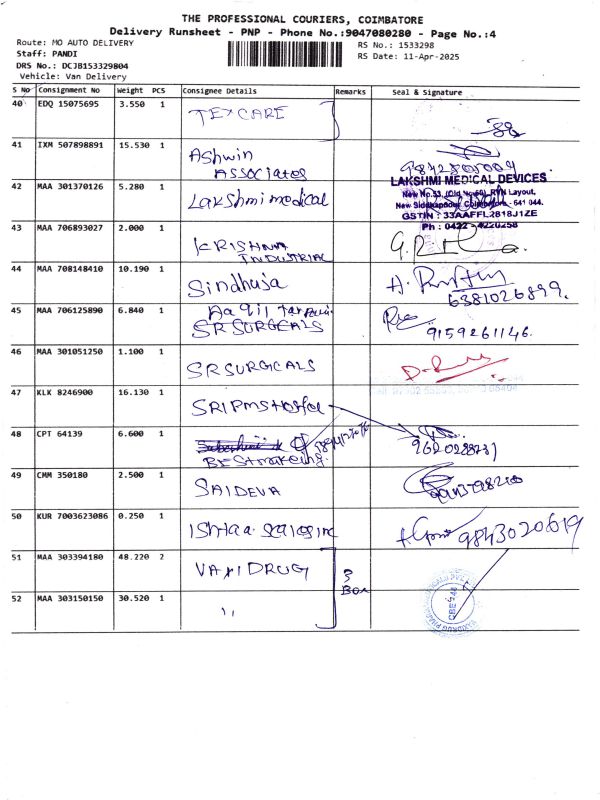 THE PROFESSIONAL COURIERS, COIMBATORE
Delivery Runsheet - PNP - Phone No.:9047080280 - Page No.:4
Route: MO AUTO DELIVERY
Staff: PANDI
DRS No.: DCJB153329804
Vehicle: Van Delivery
RS No.: 1533298
RS Date: 11-Apr-2025
S No Consignment No Weight PCS Consignee Details Remarks Seal & Signature
40 EDQ 15075695 3.550 1 TEXCARE
41 IXM 507898891 15.530 1 Ashwin
Associates
42 MAA 301370126 5.280 1 Lakshmi medical
LAKSHMI MEDICAL DEVICES
New No.33, (Old No.69), RYN Layout,
New Siddhapudur, Coimbatore - 641 044.
GSTIN : 33AAFFL2818J1ZE
Ph : 0422 - 4220258
43 MAA 706893027 2.000 1 KRISHNA
INDUSTRIAL
44 MAA 708148410 10.190 1 Sindhuja
6381026899.
45 MAA 706125890 6.840 1 Aaqil
SR SURGECALS
9159261146.
46 MAA 301051250 1.100 1 SR SURGICALS
47 KLK 8246900 16.130 1 SRI PMS
48 CPT 64139 6.600 1
49 CMM 350180 2.500 1 SAIDEVA
50 KUR 7003623086 0.250 1 9843020619
51 MAA 303394180 48.220 2 VAXI DRUG 3
Box
52 MAA 303150150 30.520 1 ''